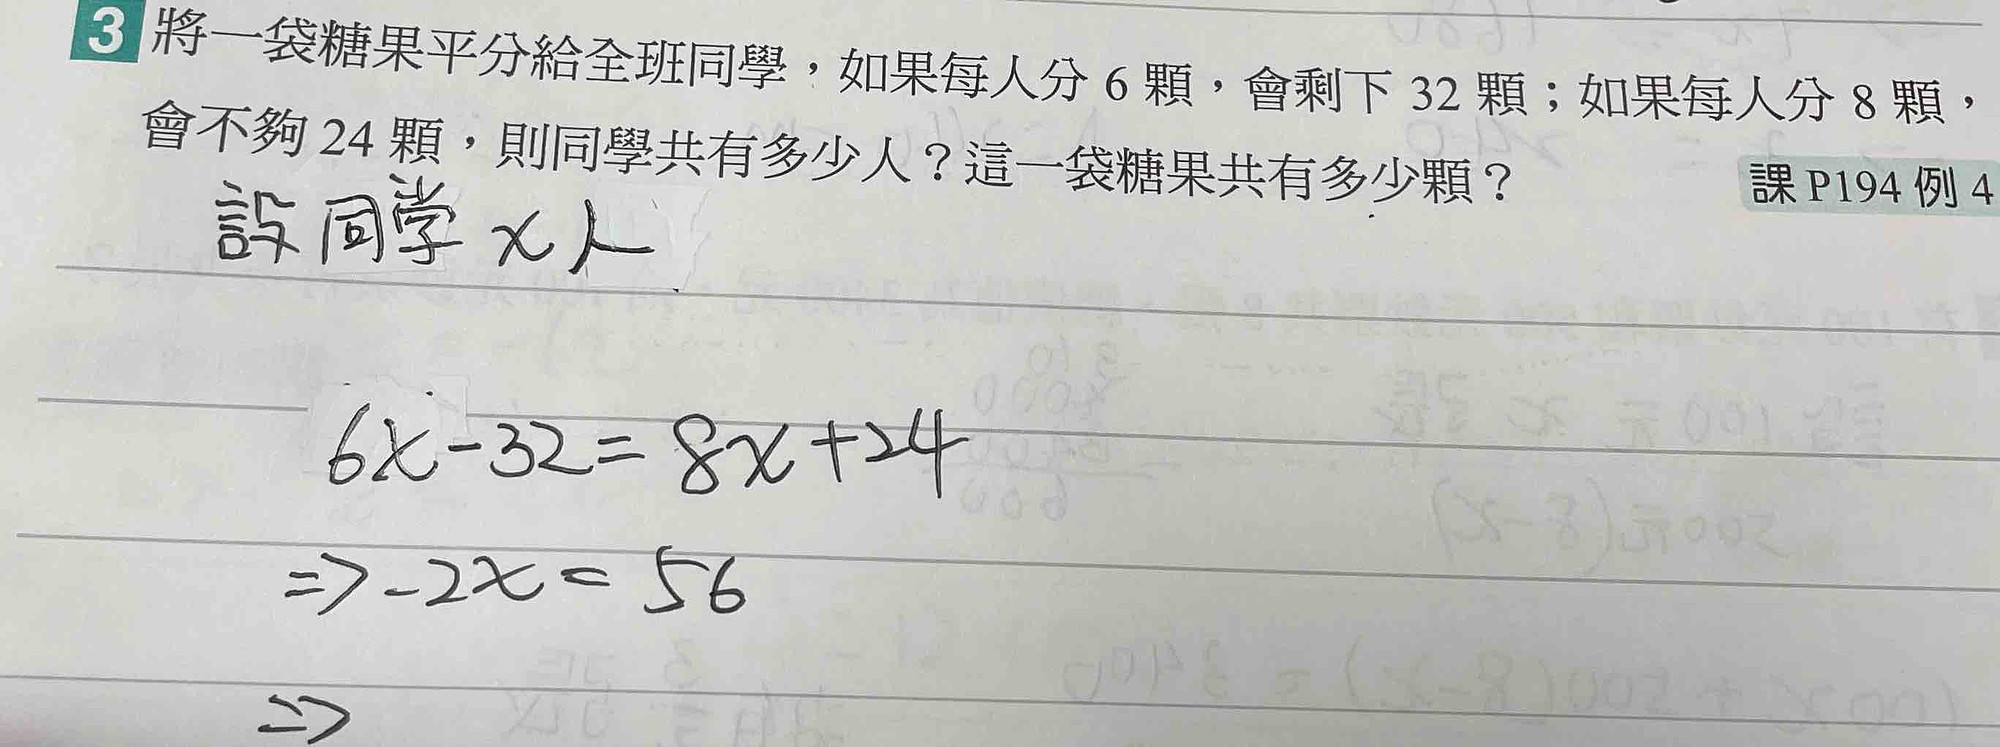 3 將一袋糖果平分給全班同學，如果每人分 6 顆，會剩下 32 顆；如果每人分 8 顆，
會不夠 24 顆，則同學共有多少人？這一袋糖果共有多少顆？
課 P194 例 4
設同学 x 人
6x-32=8x+24
=>-2x=56
=>